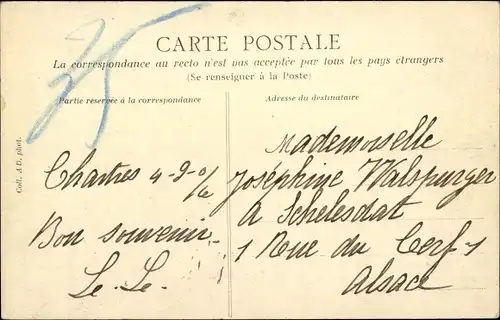 35
CARTE POSTALE
La correspondance au recto n'est pas acceptée par tous les pays étrangers
(Se renseigner à la Poste)
Partie réservée à la correspondance
Adresse du destinataire
Coll. A D. phot.
Chartres 4-9-0/6
Bon souvenir
Le. Le.
Mademoiselle
Joséphine Walspurger
A Schelesdat
1 Rue du Cerf 1
Alsace